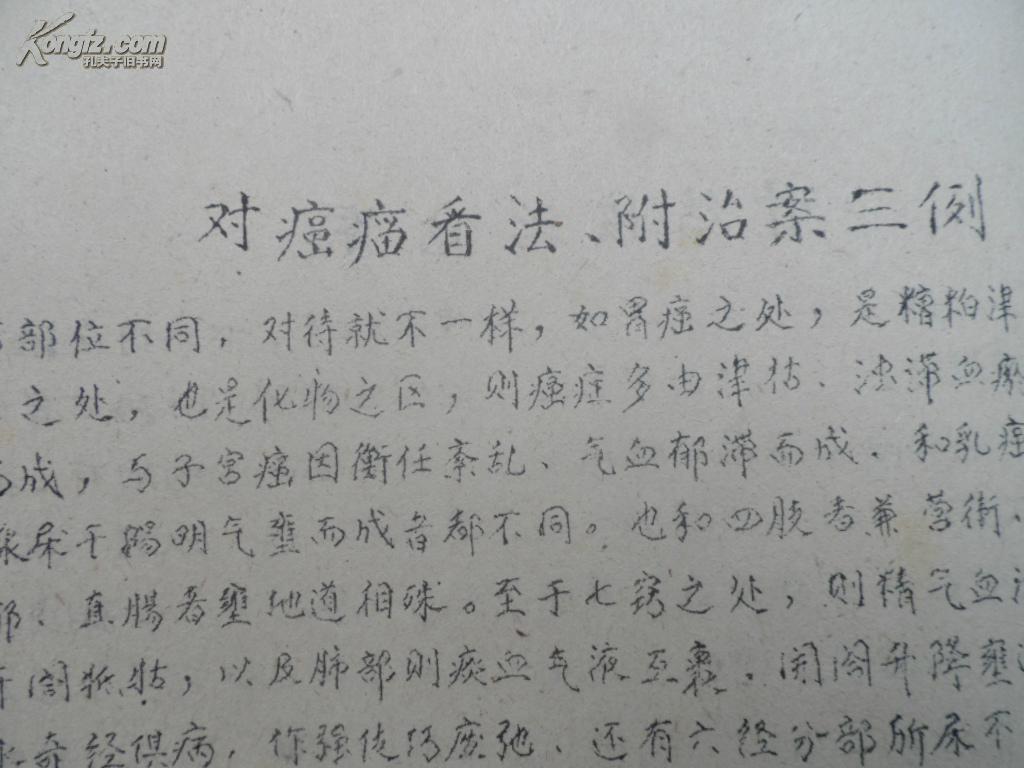 Kongfz.com
孔夫子旧书网
对癌瘤看法、附治案三例
部位不同,对待就不一样,如胃癌之处,是糟粕津
之处,也是化物之区,则癌症多由津枯、浊滞血瘀
成,与子宫癌因衝任紊乱、气血郁滞而成,和乳癌
尿于陽明气壅而成者都不同。也和四肢者兼营衛、
部、直腸者壅地道相殊。至于七窍之处,则精气血
阖抵牾,以及肺部则痰血气液互裹,闭阖升降壅
奇经俱病,作强伎巧废弛、还有六经分部所尿不